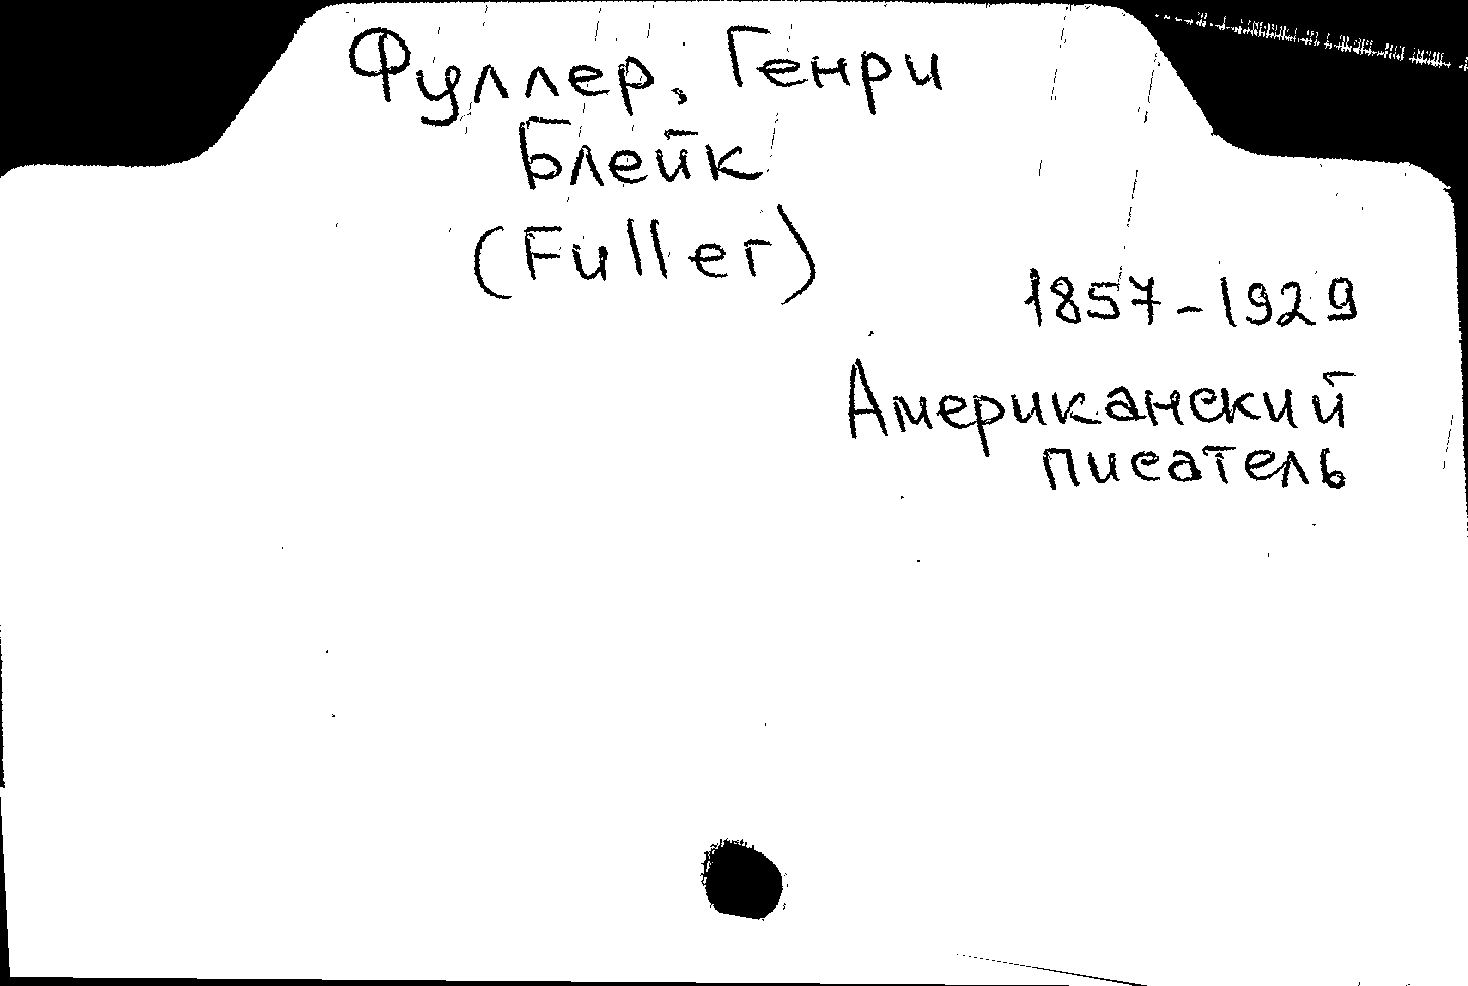 Фуллер, Генри
Блейк
(Fuller)
1857-1929
Американский
писатель